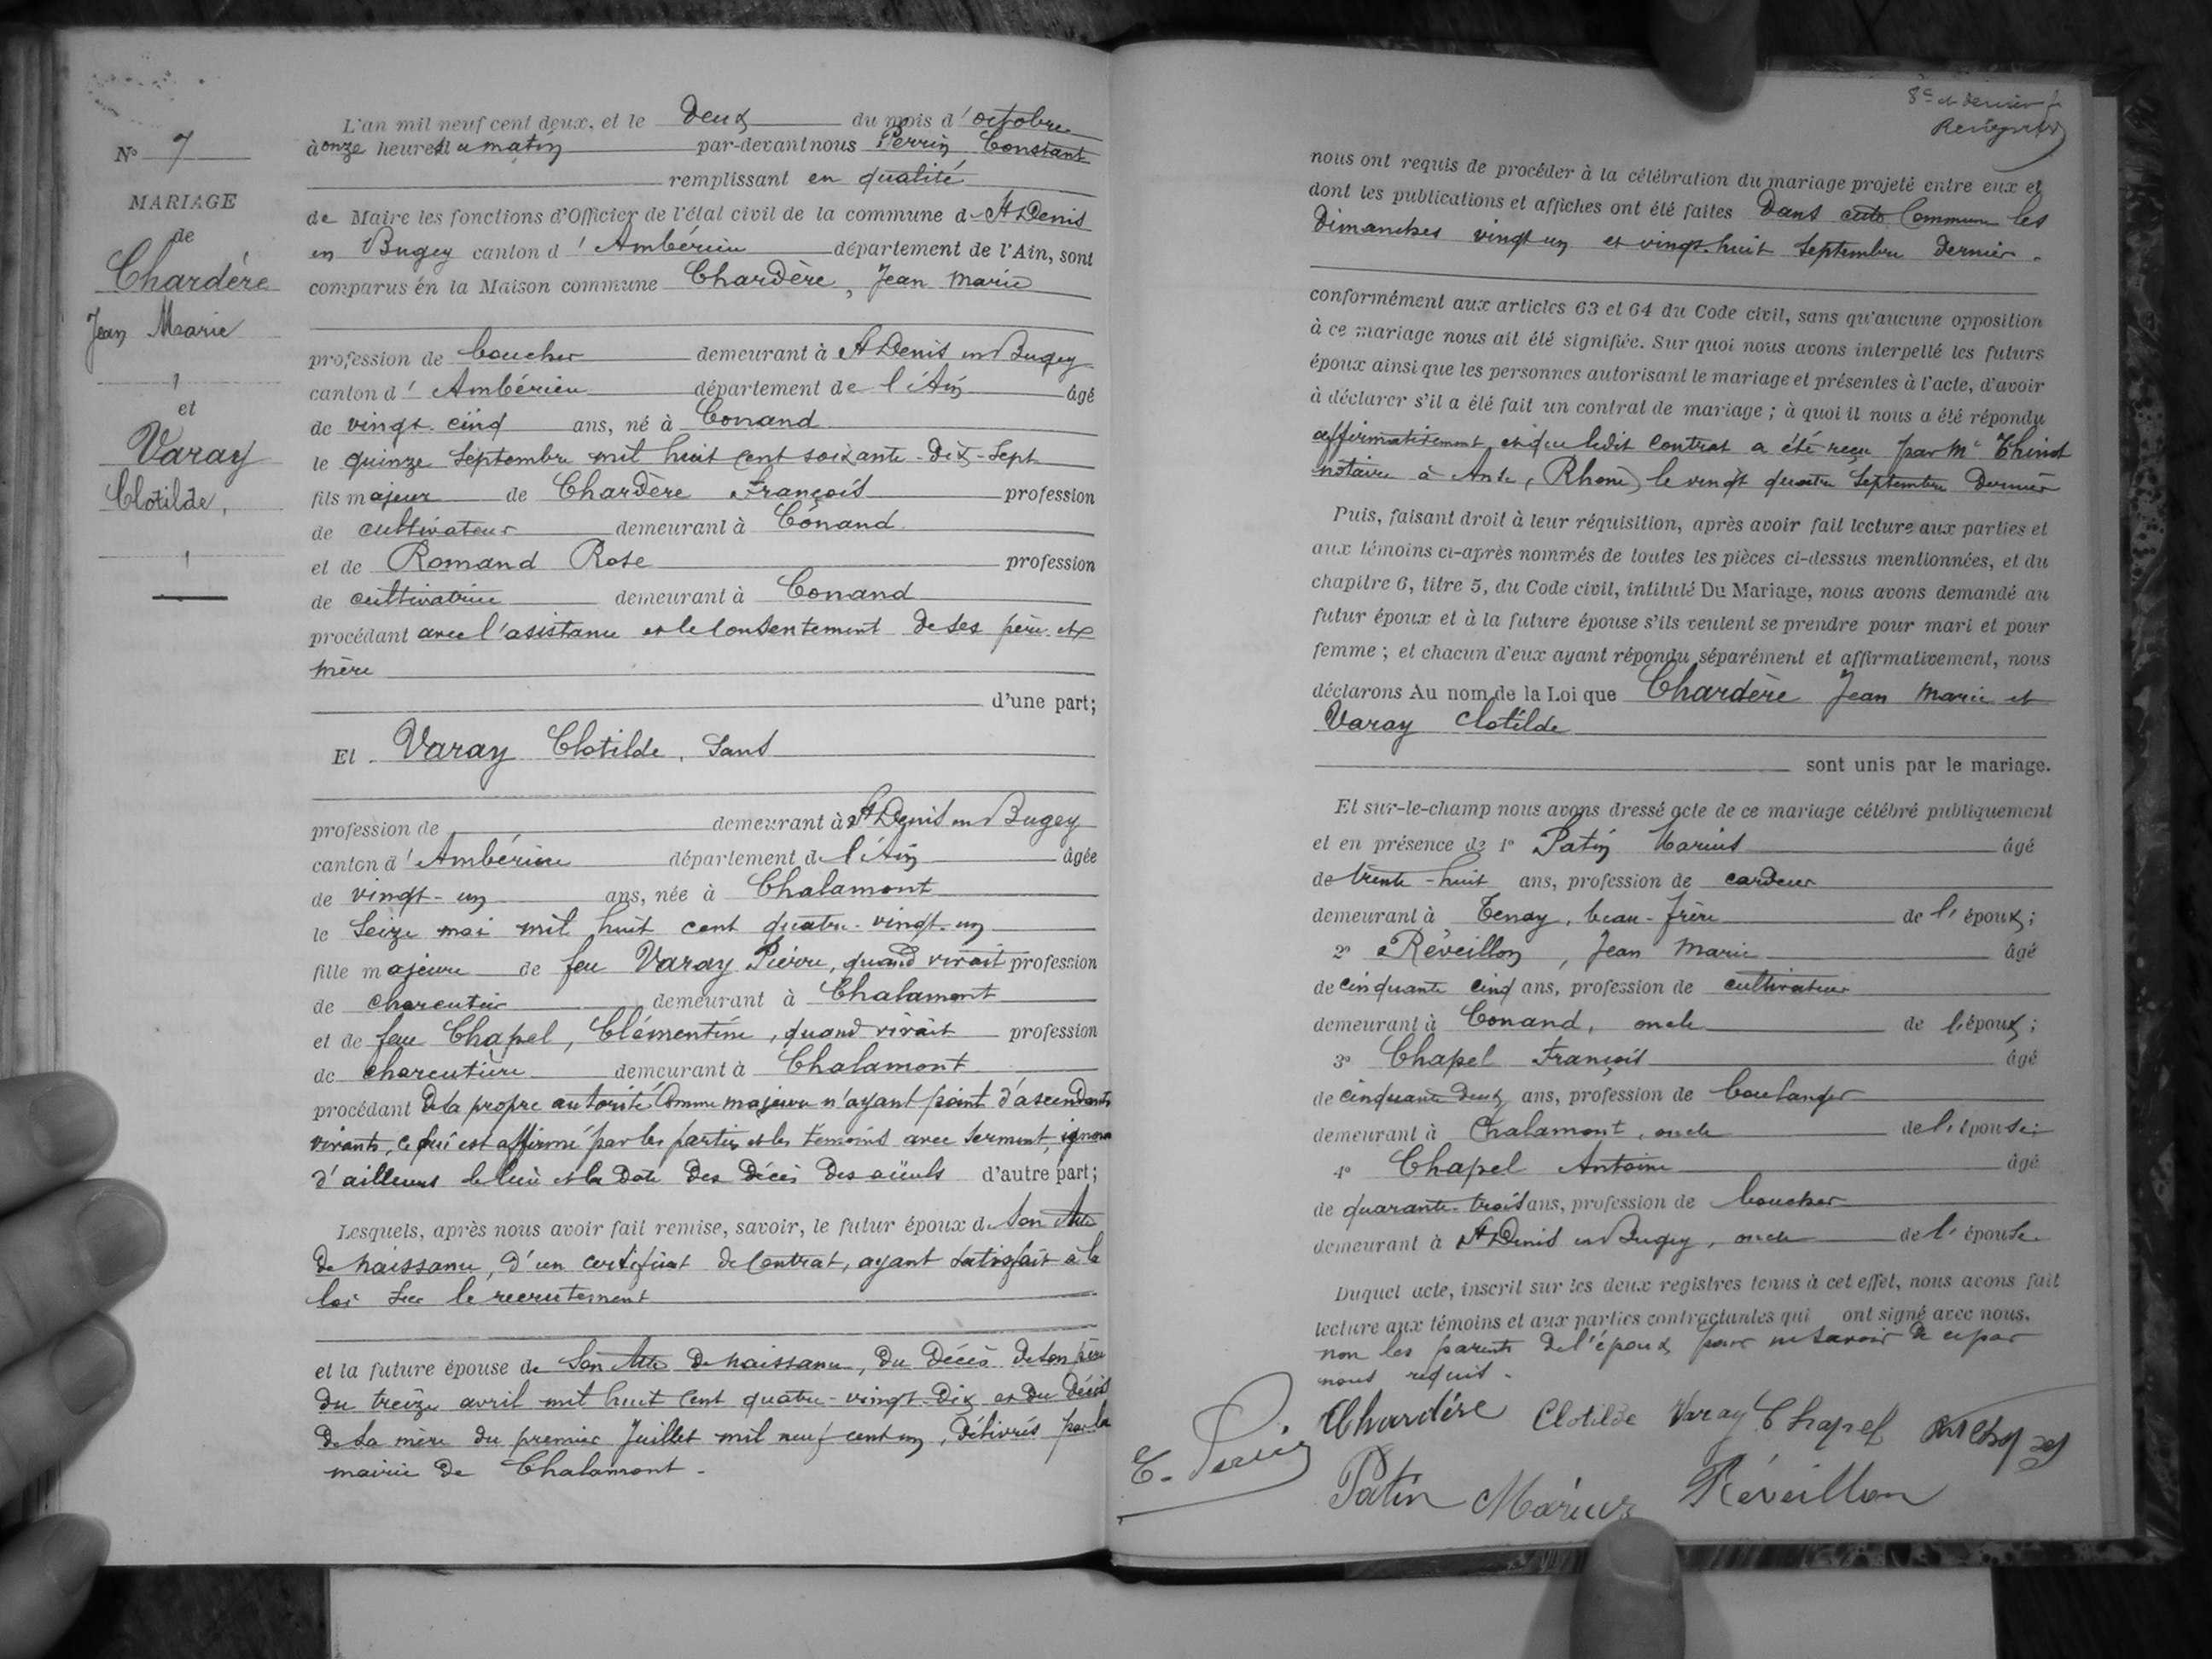 N° 7
MARIAGE
de
Chardère
Jean Marie
et
Varay
Clotilde,
L'an mil neuf cent deux, et le deux du mois d'octobre
à onze heures du matin par-devant nous Perrin Constant
remplissant en qualité
de Maire les fonctions d'Officier de l'état civil de la commune d St Denis
en Bugey canton d'Ambérieu département de l'Ain, sont
comparus en la Maison commune Chardère, Jean Marie
profession de boucher demeurant à St Denis en Bugey
canton d'Ambérieu département de l'Ain âgé
de vingt-cinq ans, né à Conand
le quinze Septembre mil huit cent soixante-dix-sept
fils majeur de Chardère François profession
de cultivateur demeurant à Conand
et de Romand Rose profession
de cultivatrice demeurant à Conand
procédant avec l'asistance et le consentement de ses père et
mère
d'une part;
Et Varay Clotilde, sans
profession de demeurant à St Denis en Bugey
canton d'Ambérieu département de l'Ain âgée
de vingt-un ans, née à Chalamont
le seize mai mil huit cent quatre-vingt-un
fille majeure de feu Varay Pierre, quand vivait profession
de charcutier demeurant à Chalamont
et de feue Chapel, Clémentine, quand vivait profession
de charcutière demeurant à Chalamont
procédant de sa propre autorité comme majeure n'ayant point d'ascendants
vivants, ce qui est affirmé par les parties et les témoins avec serment,
d'ailleurs le lieu et la date des décès des aïeuls d'autre part;
Lesquels, après nous avoir fait remise, savoir, le futur époux de son acte
de naissance, d'un certificat de contrat, ayant satisfait à la
loi sur le recrutement
et la future épouse de son acte de naissance, du décès de son père
du treize avril mil huit cent quatre-vingt-dix et du décès
de sa mère du premier Juillet mil neuf cent un, délivrés par la
mairie de Chalamont.
8e et dernier f
nous ont requis de procéder à la célébration du mariage projeté entre eux et
dont les publications et affiches ont été faites dans cette Commune les
dimanches vingt un et vingt-huit septembre dernier.
conformément aux articles 63 et 64 du Code civil, sans qu'aucune opposition
à ce mariage nous ait été signifiée. Sur quoi nous avons interpellé les futurs
époux ainsi que les personnes autorisant le mariage et présentes à l'acte, d'avoir
à déclarer s'il a été fait un contrat de mariage ; à quoi il nous a été répondu
affirmativement et que ledit contrat a été reçu par Me Thinot
notaire à Anse, (Rhône) le vingt quatre Septembre dernier
Puis, faisant droit à leur réquisition, après avoir fait lecture aux parties et
aux témoins ci-après nommés de toutes les pièces ci-dessus mentionnées, et du
chapitre 6, titre 5, du Code civil, intitulé Du Mariage, nous avons demandé au
futur époux et à la future épouse s'ils veulent se prendre pour mari et pour
femme ; et chacun d'eux ayant répondu séparément et affirmativement, nous
déclarons Au nom de la Loi que Chardère Jean Marie et
Varay Clotilde
sont unis par le mariage.
Et sur-le-champ nous avons dressé acte de ce mariage célébré publiquement
et en présence de 1° Patin Marius âgé
de trente-huit ans, profession de cardeur
demeurant à Tenay, beau-frère de l'époux;
2° Réveillon, Jean Marie âgé
de cinquante cinq ans, profession de cultivateur
demeurant à Conand, oncle de l'époux;
3° Chapel François âgé
de cinquante deux ans, profession de boulanger
demeurant à Chalamont, oncle de l'épouse;
4° Chapel Antoine âgé
de quarante-trois ans, profession de boucher
demeurant à St Denis en Bugey, oncle de l'épouse.
Duquel acte, inscrit sur les deux registres tenus à cet effet, nous avons fait
lecture aux témoins et aux parties contractantes qui ont signé avec nous.
non les parents de l'époux pour ne savoir de ce par
nous requis.
Chardère Clotilde Varay Chapel
C. Perrin
Patin Marius Réveillon